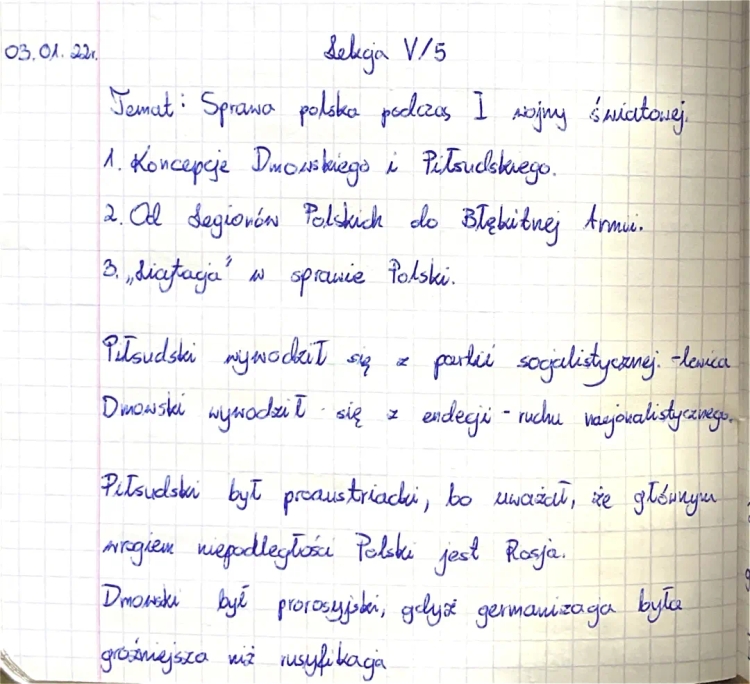 03.01.22r. Lekcja V/5
Temat: Sprawa polska podczas I wojny światowej.
1. Koncepcje Dmowskiego i Piłsudskiego.
2. Od Legionów Polskich do Błękitnej Armii.
3. „Licytacja” w sprawie Polski.
Piłsudski wywodził się z partii socjalistycznej. - lewica
Dmowski wywodził się z endecji - ruchu nacjonalistycznego.
Piłsudski był proaustriacki, bo uważał, że głównym
wrogiem niepodległości Polski jest Rosja.
Dmowski był prorosyjski, gdyż germanizacja była
groźniejsza niż rusyfikacja